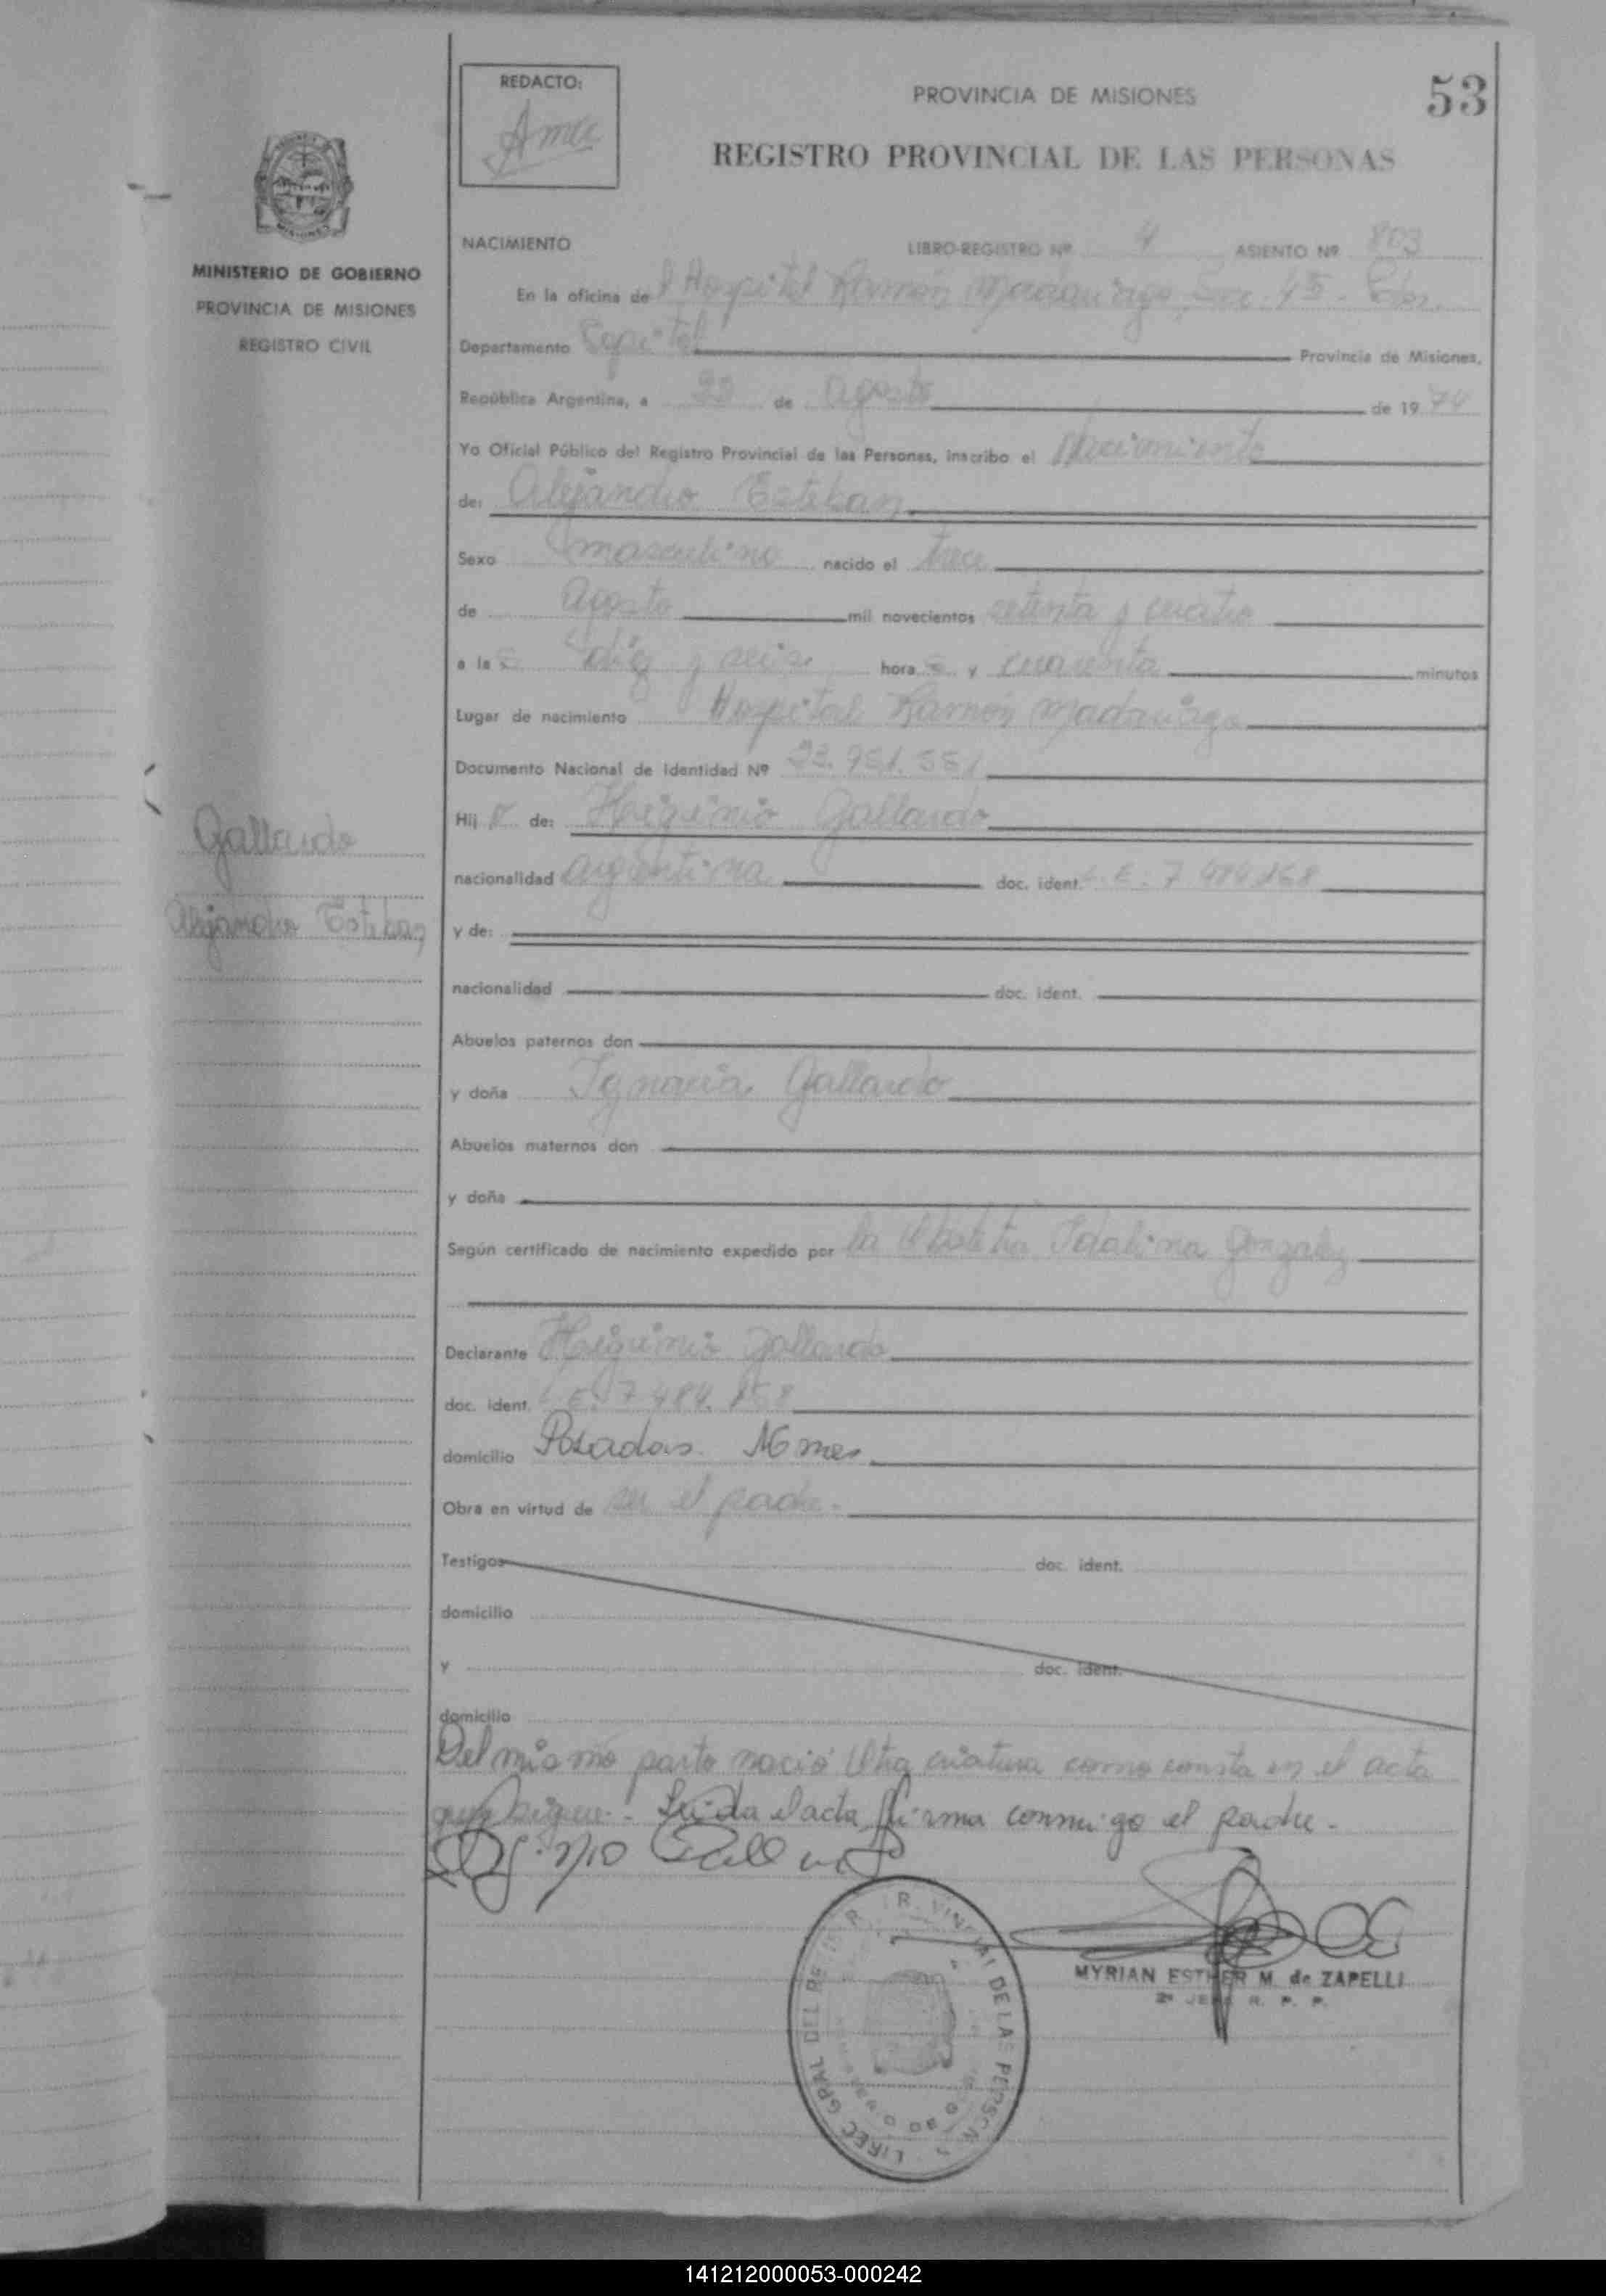 REDACTO:
PROVINCIA DE MISIONES
53
REGISTRO PROVINCIAL DE LAS PERSONAS
MINISTERIO DE GOBIERNO
PROVINCIA DE MISIONES
REGISTRO CIVIL
NACIMIENTO LIBRO-REGISTRO Nº 4 ASIENTO Nº 803
En la oficina del Hospital Ramón Madariaga Sec. 45
Departamento Capital Provincia de Misiones,
República Argentina, a de Agosto de 19 74
Yo Oficial Público del Registro Provincial de las Personas, inscribo el Nacimiento
de: Alejandro Esteban
Sexo masculino nacido el trece
de Agosto mil novecientos setenta y cuatro
a las diez y seis horas y cuarenta minutos
Lugar de nacimiento Hospital Ramón Madariaga
Documento Nacional de Identidad Nº 23.951.551
Hijo de: Higinio Gallardo
nacionalidad argentina doc. ident. L.E. 7 484 168
Gallardo
Alejandro Esteban
y de:
nacionalidad doc. ident.
Abuelos paternos don
y doña Ignacia Gallardo
Abuelos maternos don
y doña
Según certificado de nacimiento expedido por la Obstetra Idalina Gonzalez
Declarante Higinio Gallardo
doc. ident. L.E. 7 484.
domicilio Posadas. Mnes
Obra en virtud de ser el padre.
Testigos doc. ident.
domicilio
y doc. ident.
domicilio
Del mismo parto nació otra criatura como consta en el acta
que sigue. Leida el acta firma conmigo el padre.
MYRIAN ESTHER M. de ZAPELLI
2º JEFE R. P. P.
141212000053-000242